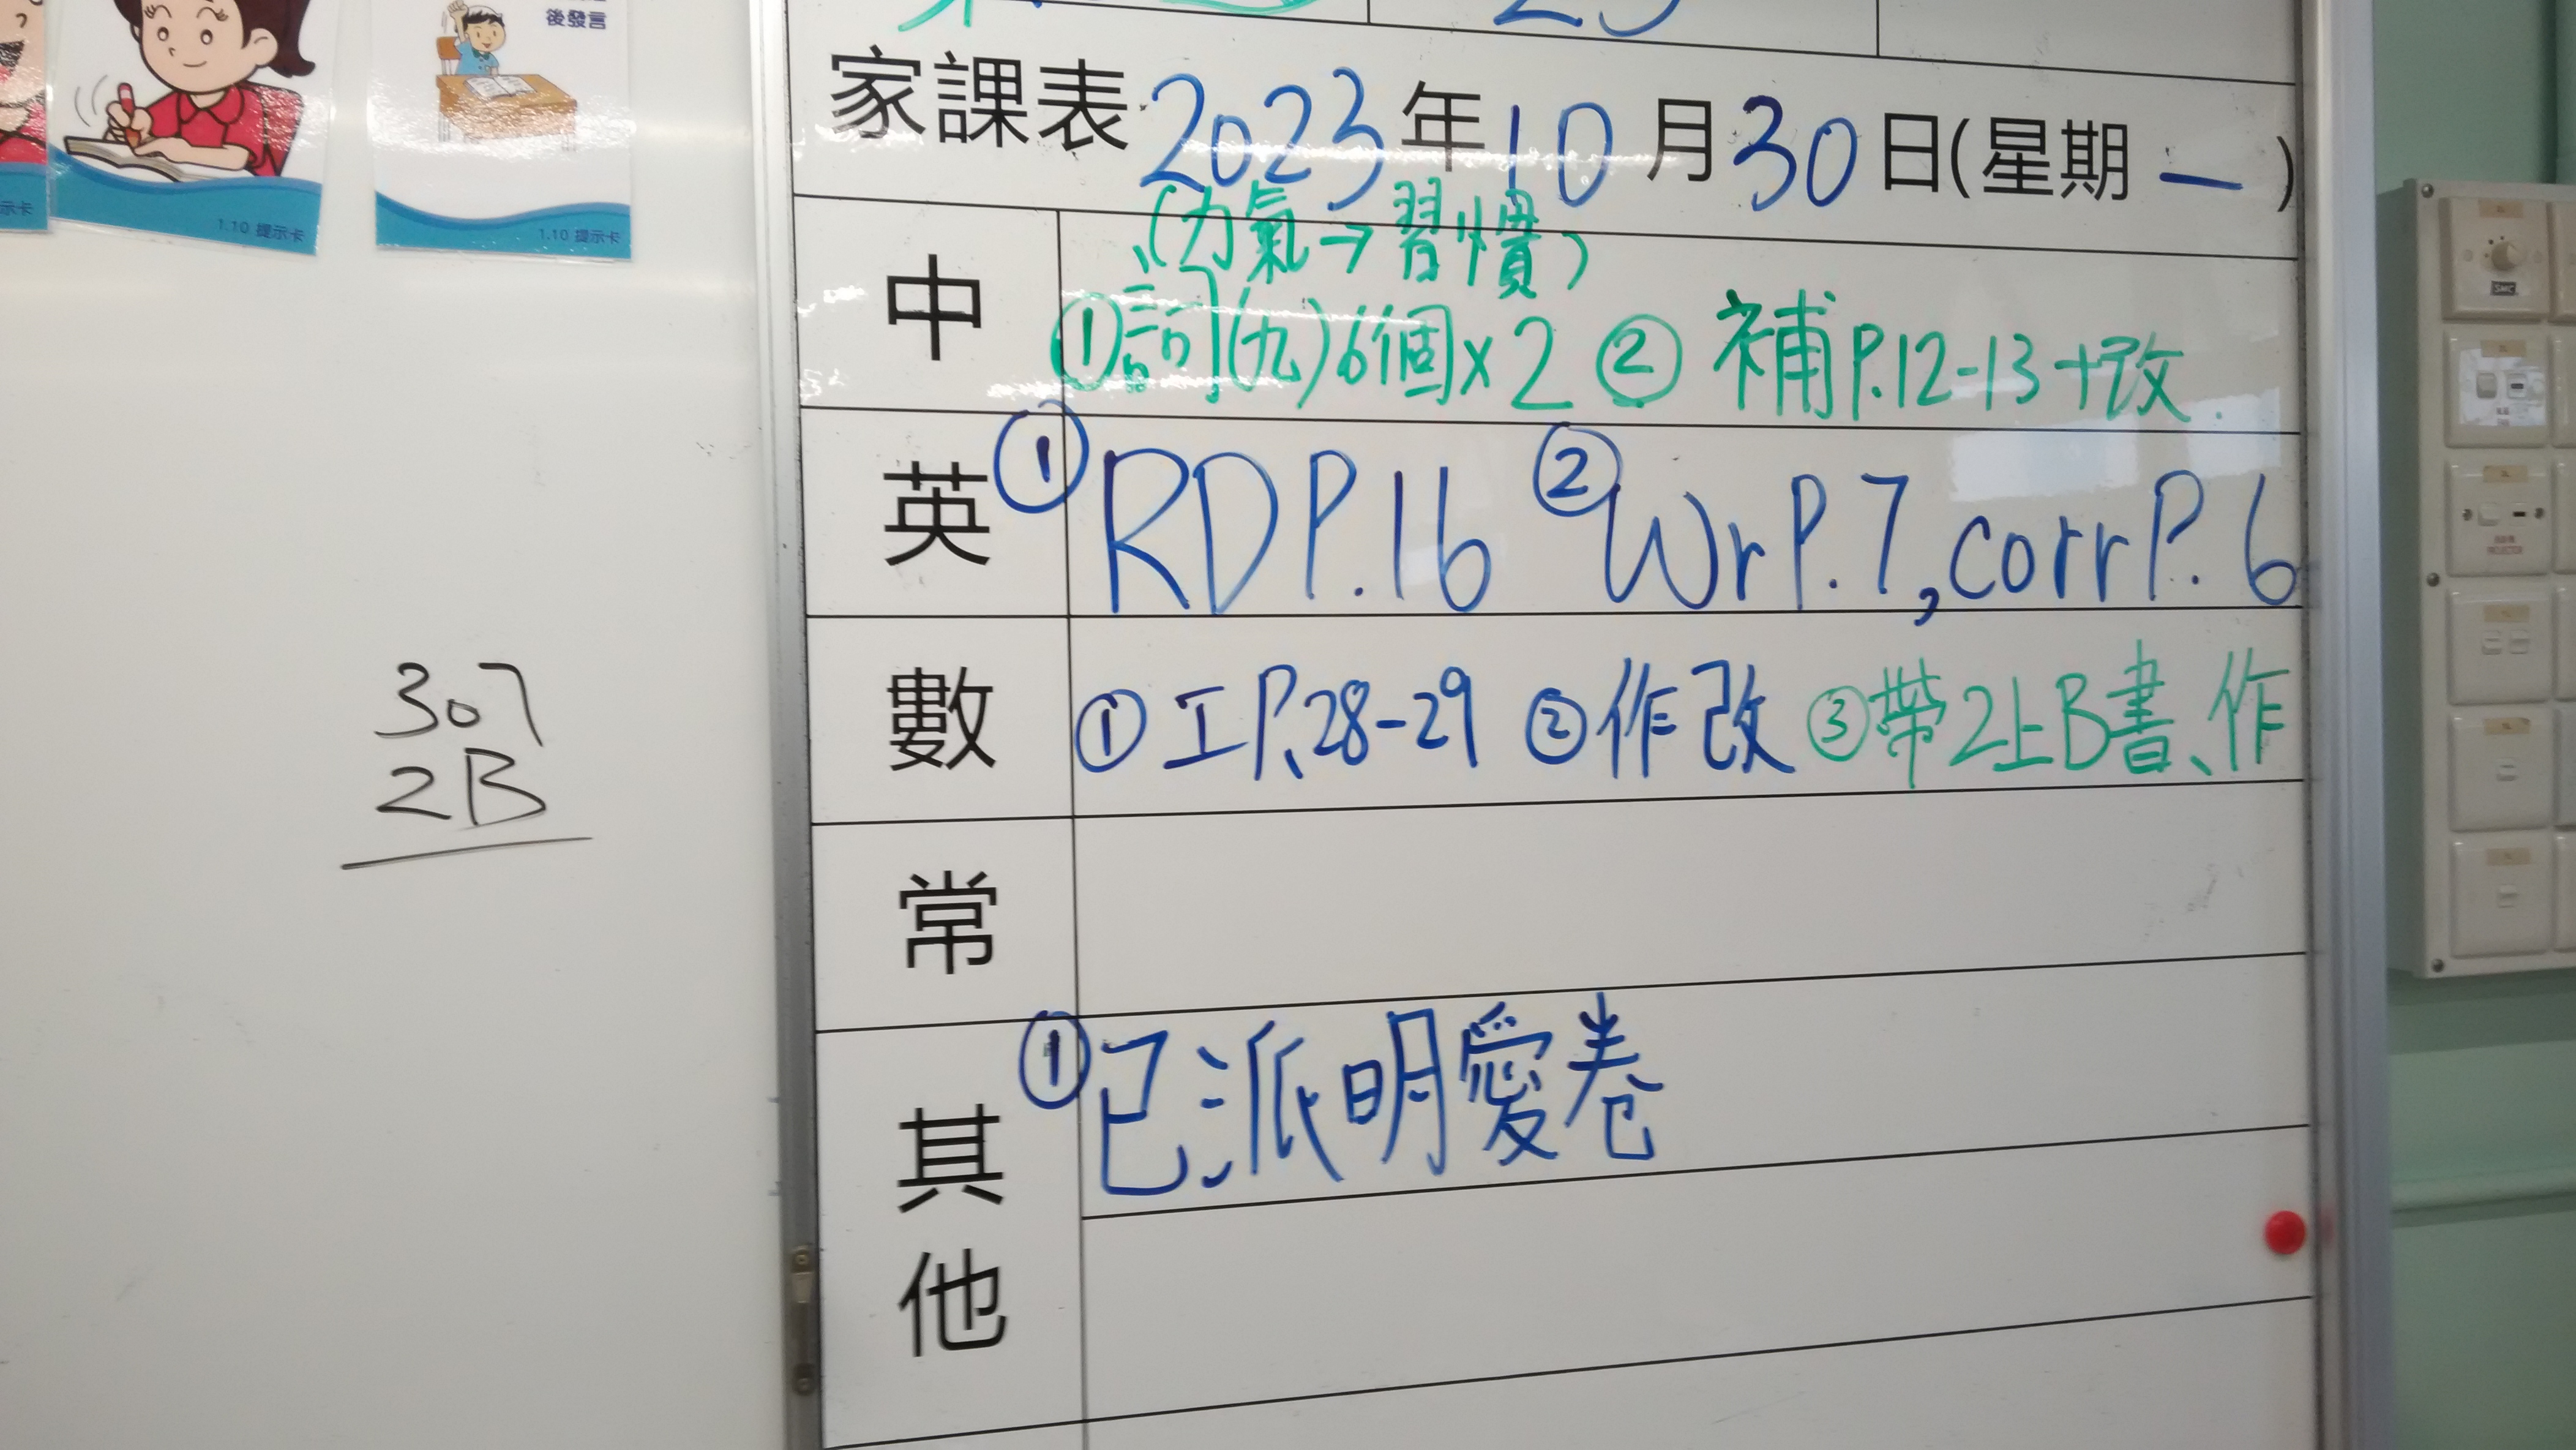 後發言
示卡
1.10 提示卡
1.10 提示卡
家課表 2023年10月30日(星期一)
(力氣→習慣)
中 ①詞(九)6個×2 ②補P.12-13+改
英 ①RD P.16 ②Wr P.7, corr P.6
數 ①工P.28-29 ②作改 ③帶2上B書、作
常
其他 ①已派明愛卷
307
2B
SMC